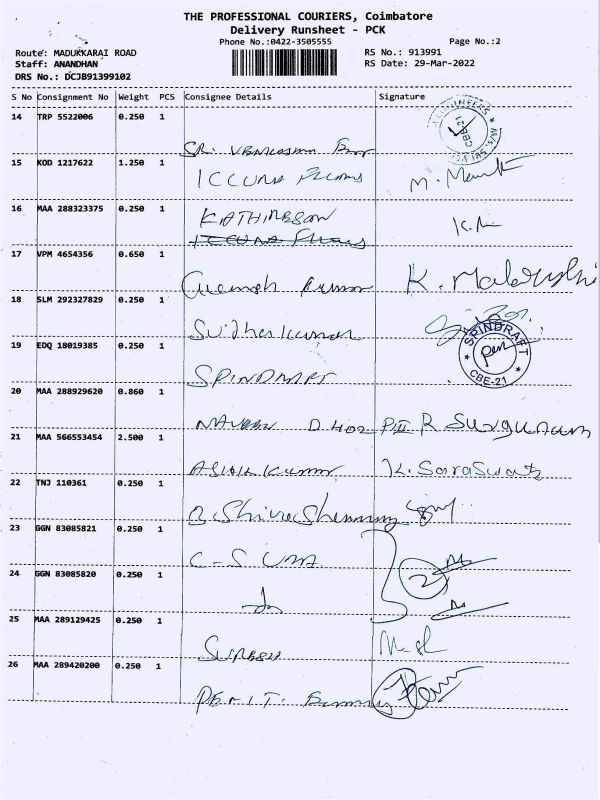 THE PROFESSIONAL COURIERS, Coimbatore
Delivery Runsheet - PCK
Phone No.:0422-3505555
Page No.:2
Route: MADUKKARAI ROAD
RS No.: 913991
Staff: ANANDHAN
RS Date: 29-Mar-2022
DRS No.: DCJB91399102
S No Consignment No Weight PCS Consignee Details Signature
14 TRP 5522006 0.250 1
CBE-21
15 KOD 1217622 1.250 1
ICCUNA
16 MAA 288323375 0.250 1
KATHIRESAN
17 VPM 4654356 0.650 1
Kumar K.
18 SLM 292327829 0.250 1
Sudharkumar
19 EDQ 18019385 0.250 1
SPINDRAFT
SPINDRAFT
CBE-21
20 MAA 288929620 0.860 1
NAVEEN D 402 PII R Surgunam
21 MAA 566553454 2.500 1
Kumar K. Saraswati
22 TNJ 110361 0.250 1
23 GGN 83085821 0.250 1
C-S UMA
24 GGN 83085820 0.250 1
2
25 MAA 289129425 0.250 1
SURESH
26 MAA 289420200 0.250 1